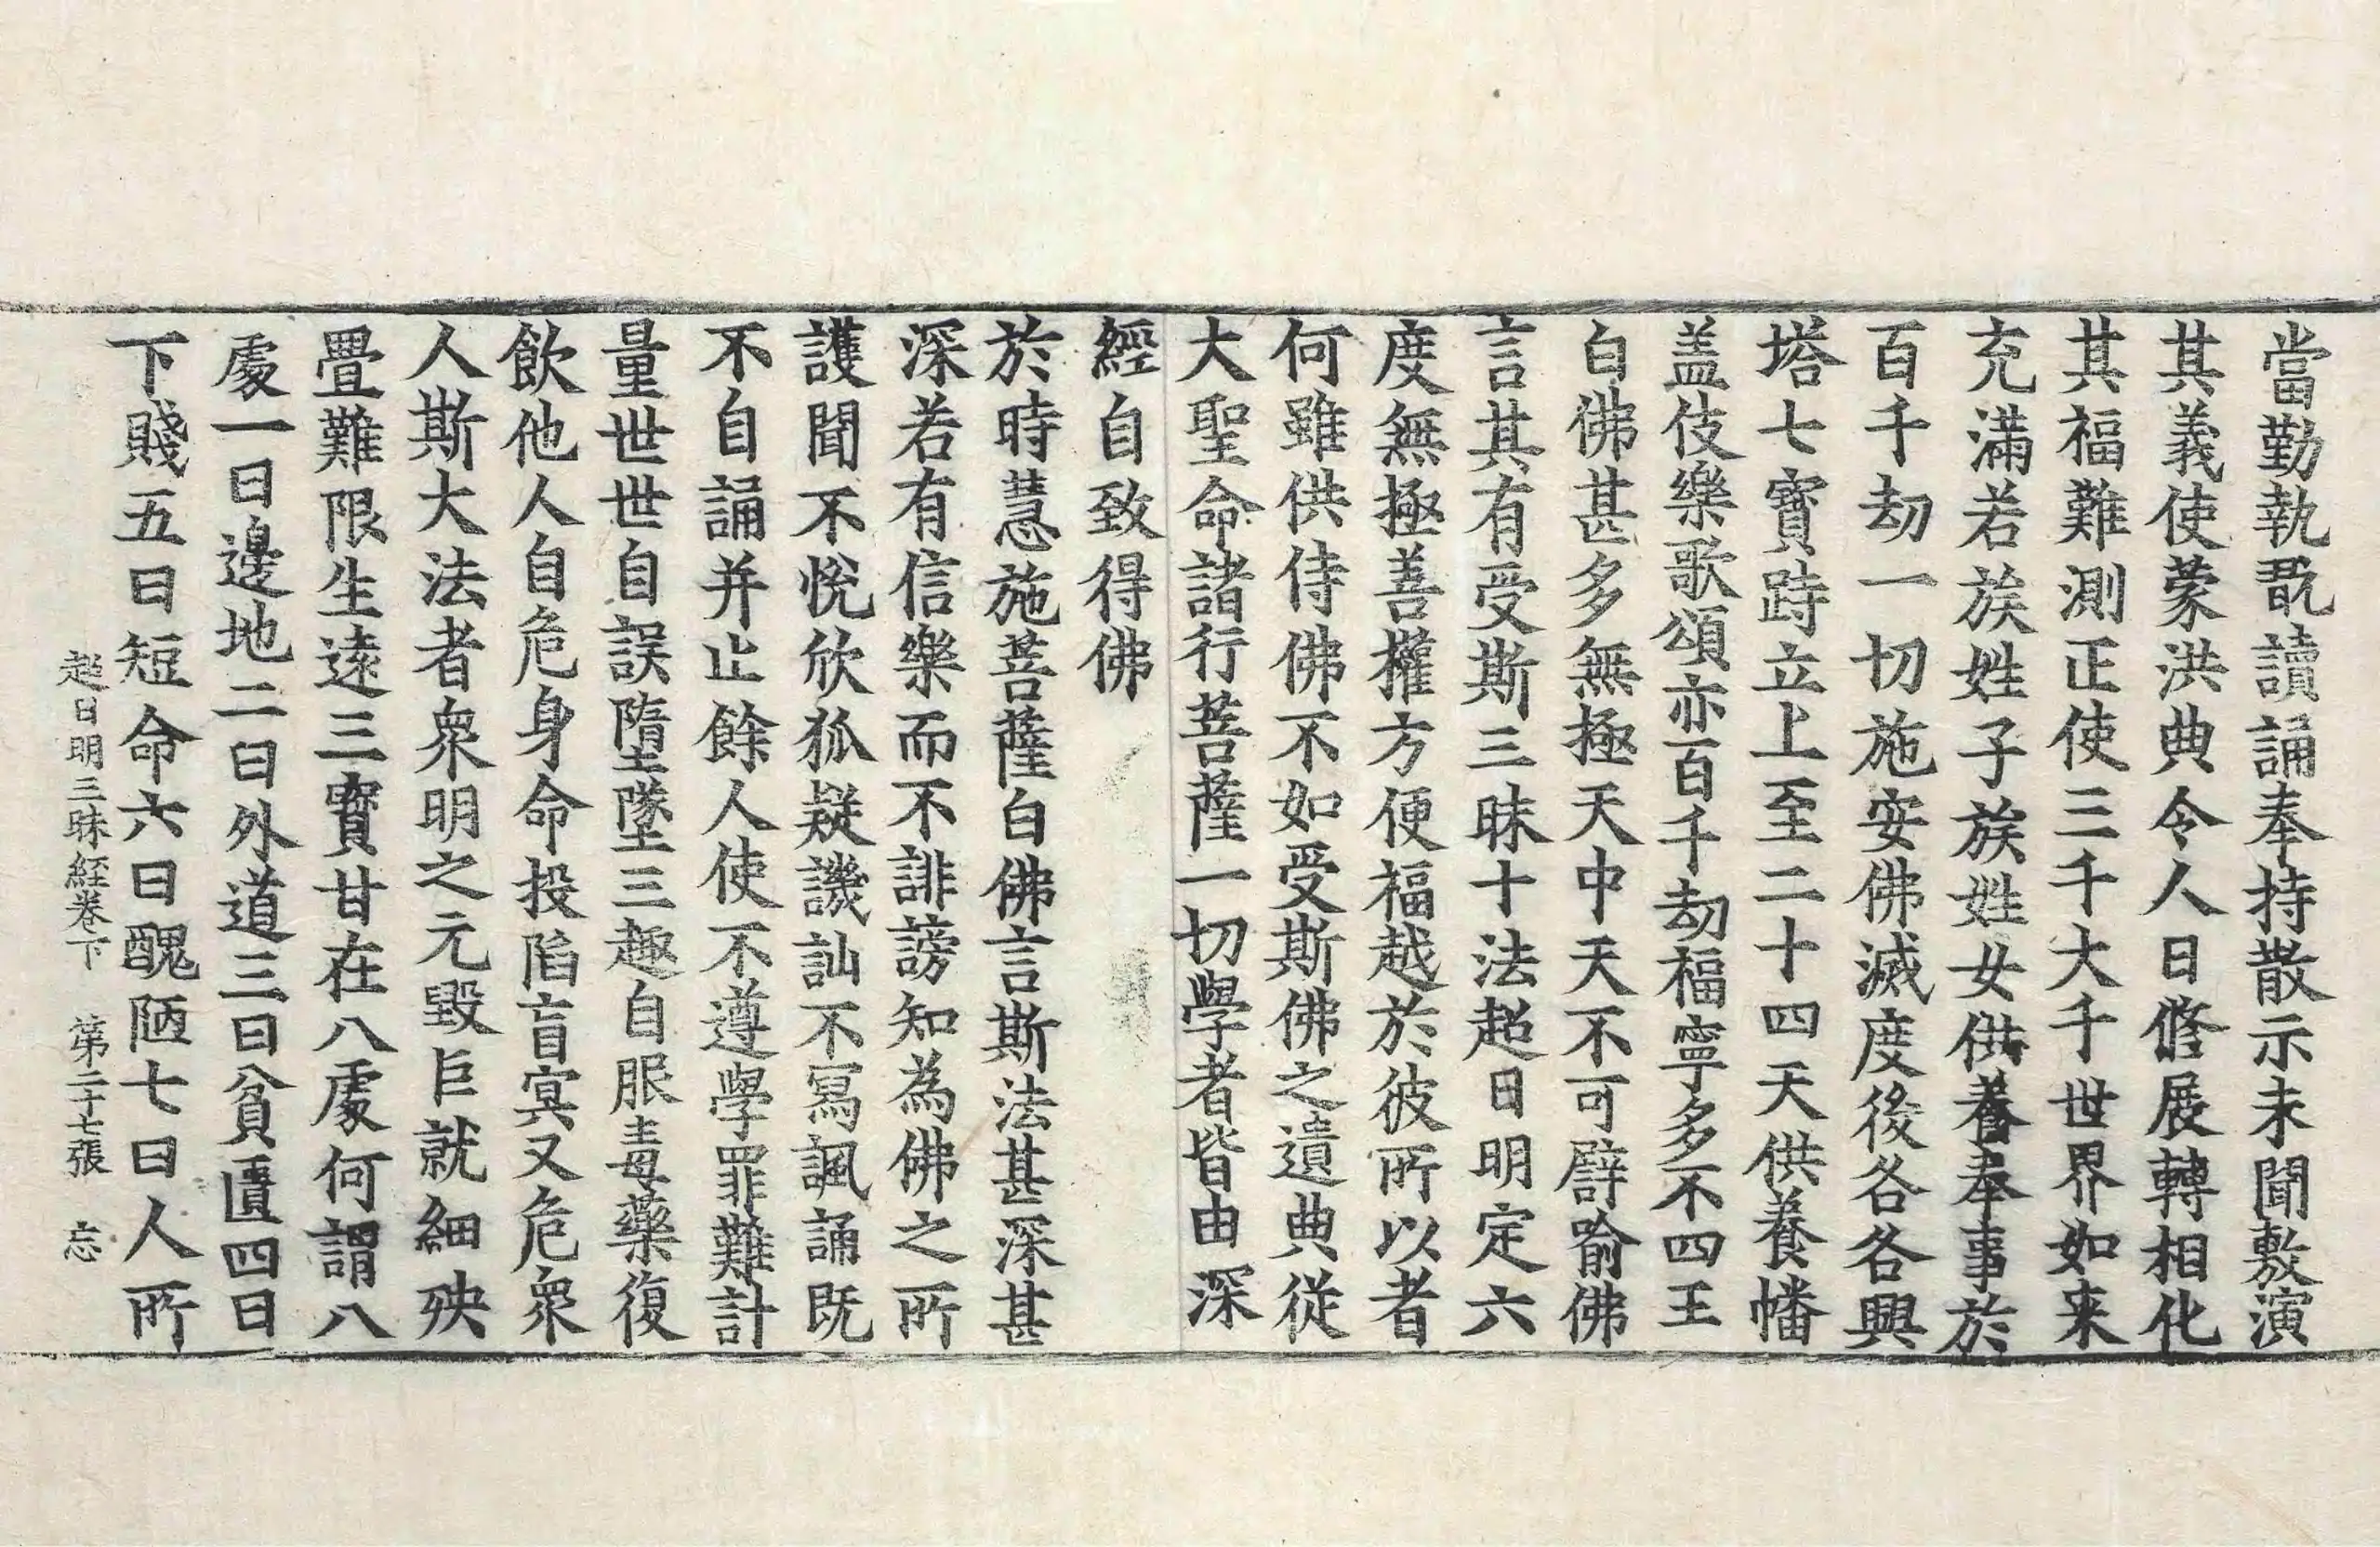 當勤執翫讀誦奉持散示未聞敷演
其義使蒙洪典令人日修展轉相化
其福難測正使三千大千世界如来
充滿若族姓子族姓女供養奉事於
百千劫一切施安佛滅度後各各興
塔七寶跱立上至二十四天供養幡
盖伎樂歌頌亦百千劫福寧多不四王
白佛甚多無極天中天不可譬喻佛
言其有受斯三昧十法超日明定六
度無極善權方便福越於彼所以者
何雖供侍佛不如受斯佛之遺典從
大聖命諸行菩薩一切學者皆由深
經自致得佛
於時慧施菩薩白佛言斯法甚深甚
深若有信樂而不誹謗知為佛之所
護聞不悅欣狐疑譏訕不寫諷誦既
不自誦并止餘人使不遵學罪難計
量世世自誤墮墜三趣自服毒藥復
飲他人自危身命投陷盲冥又危衆
人斯大法者衆明之元毀巨就細殃
疊難限生遠三寶甘在八處何謂八
處一曰邊地二曰外道三曰貧匱四曰
下賤五曰短命六曰醜陋七曰人所
超日明三昧經卷下 第二十七張 忘